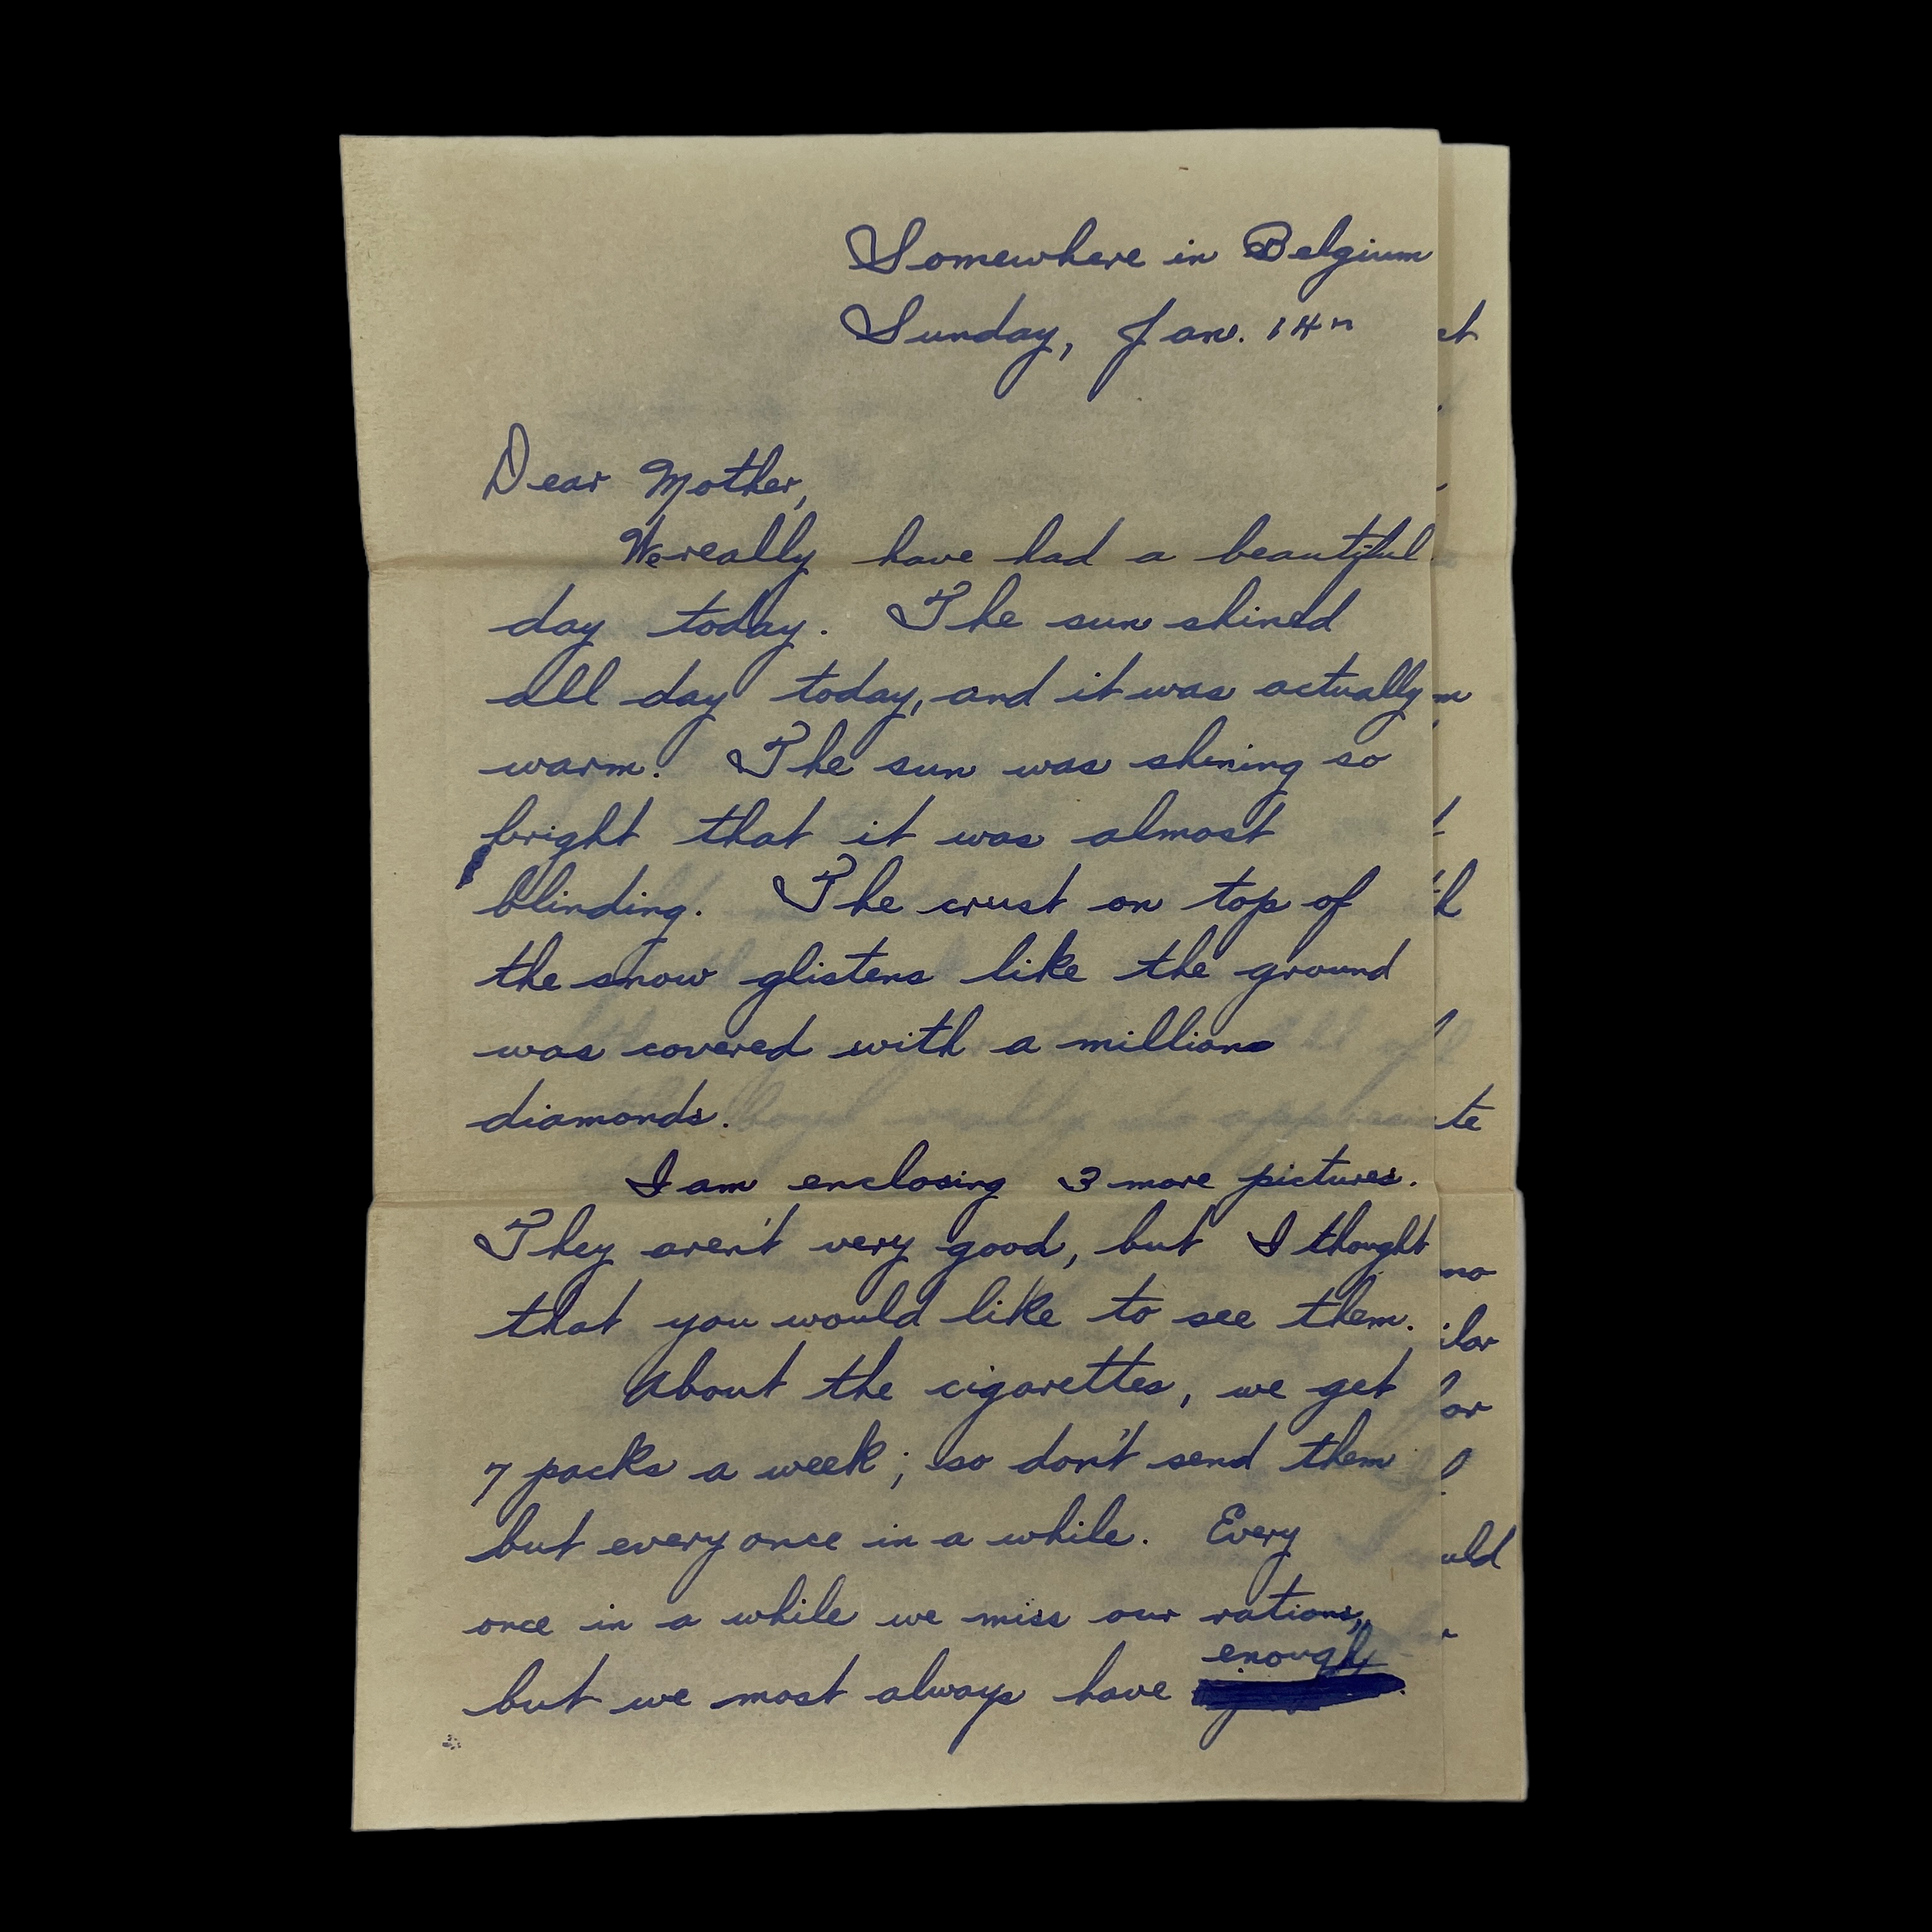 Somewhere in Belgium
Sunday, Jan. 14th
Dear Mother,
We really have had a beautiful
day today. The sun shined
all day today, and it was actually
warm. The sun was shining so
bright that it was almost
blinding. The crust on top of
the snow glistens like the ground
was covered with a million
diamonds.
I am enclosing 3 more pictures.
They aren't very good, but I thought
that you would like to see them.
About the cigarettes, we get
7 packs a week; so don't send them
but every once in a while. Every
once in a while we miss our rations,
enough
but we most always have